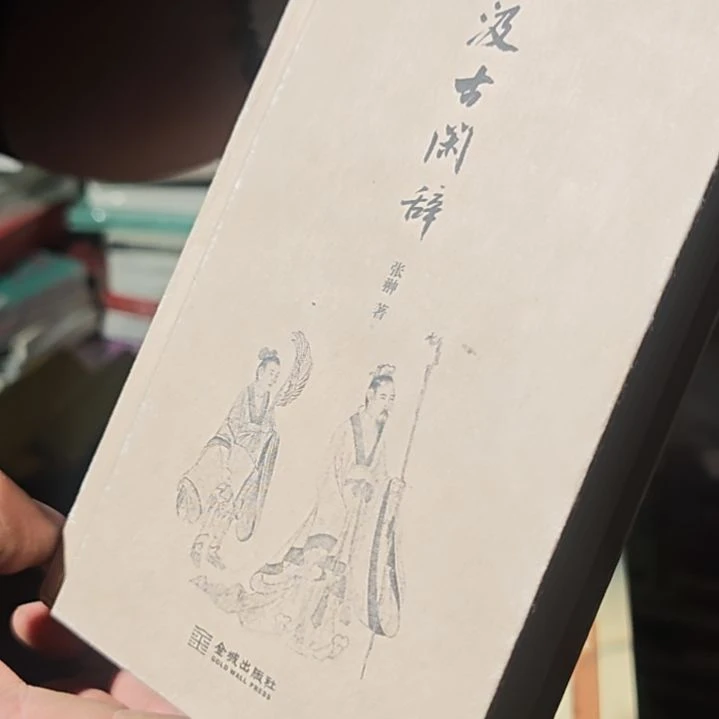 汲古闲辞
张翀 著
金城出版社
GOLD WALL PRESS